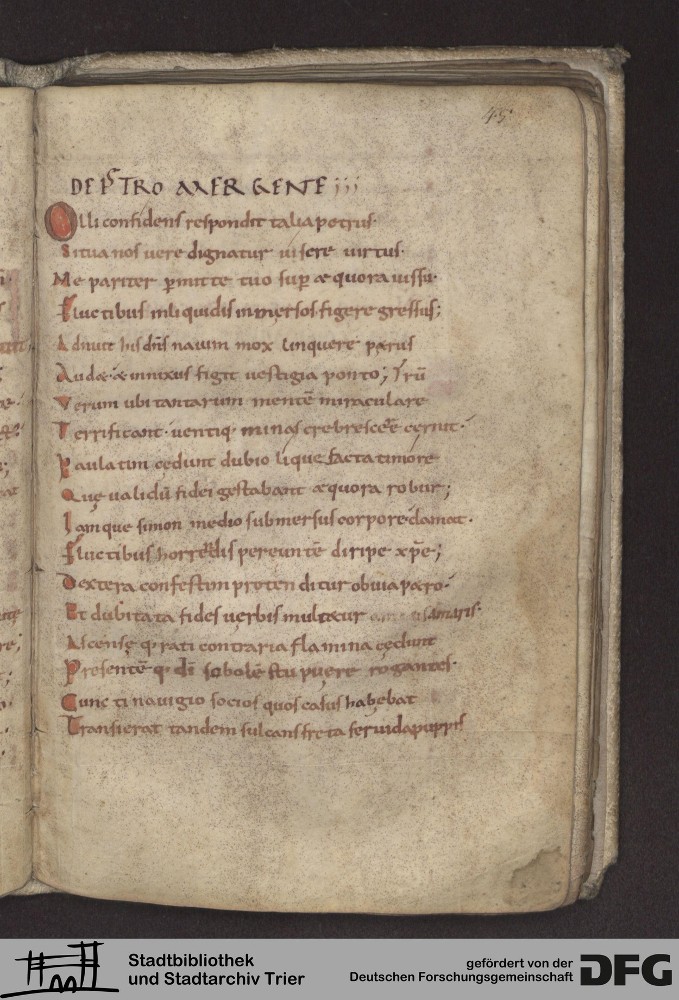 45
DE PETRO MERGENTE iii
Olli confidens respondit talia petrus·
Si tua nos uere dignatur uisere uirtus·
Me pariter pmitte tuo sup aequora iussu·
Fluctibus inliquidis inmersos figere gressus;
Adnuit his dn̄s nauim mox linquere petrus
Audet & innixus figit uestigia ponto;
Verum ubi tantarum mentē miracula re
Terrificant· uentiq· minas crebrescere cernit·
Paulatim cedunt dubio liquefacta timore
Quę ualidū fidei gestabant aequora robur;
Iamque simon medio submersus corpore clamat·
Fluctibus horrendis pereuntē diripe xp̄e;
Dextera confestim protenditur obuia petro·
Et dubitata fides uerbis mulcetur amaris·
Ascensę q· rati contraria flamina cedunt
Presentē q· dī sobolē stupuere rogantes·
Cuncti nauigio socios quos casus habebat
Transierat tandem sulcans freta feruida puppis
Stadtbibliothek
und Stadtarchiv Trier
gefördert von der
Deutschen Forschungsgemeinschaft
DFG